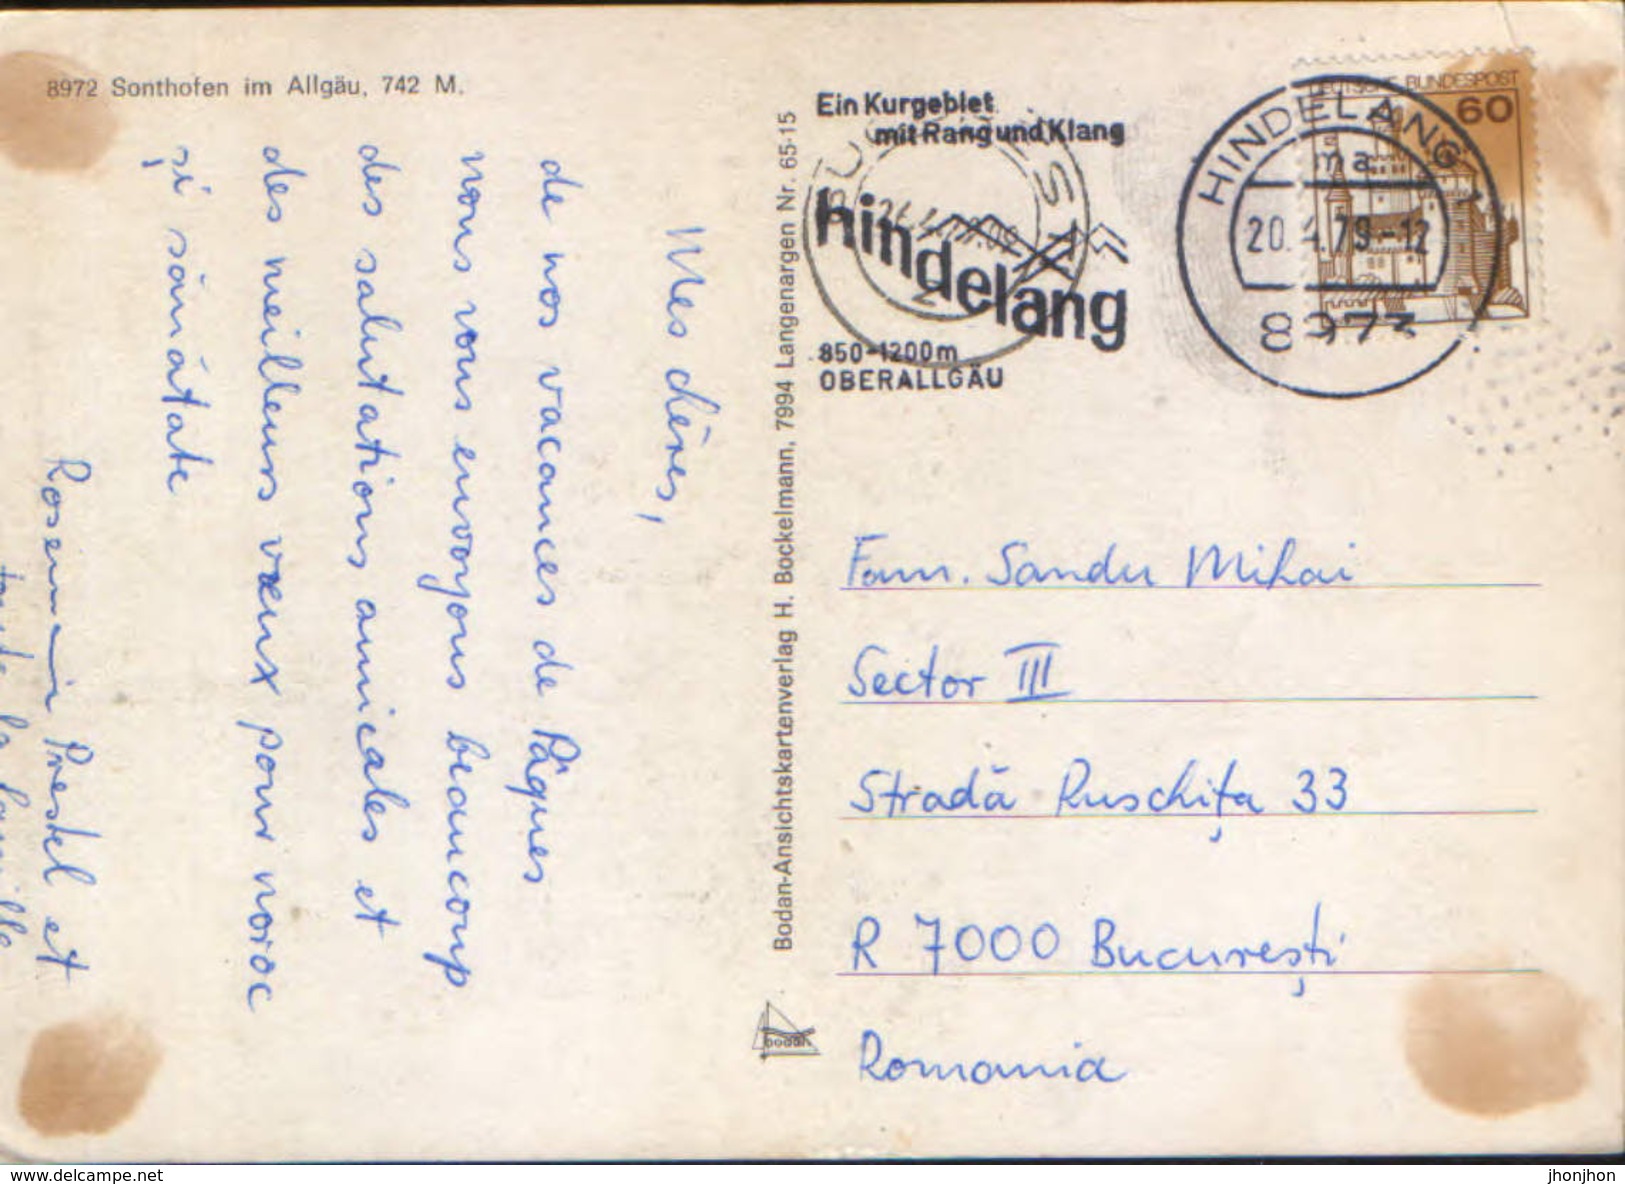 8972 Sonthofen im Allgäu, 742 M.
Mes chères,
de nos vacances de Pâques
nous vous envoyons beaucoup
des salutations amicales et
des meilleurs vœux pour noroc
și sănătate
Rosemarin Prestel et
toute la famille
Bodan-Ansichtskartenverlag H. Bockelmann, 7994 Langenargen Nr. 65-15
bodan
Ein Kurgebiet
mit Rang und Klang
hindelang
850-1200m
OBERALLGÄU
HINDELANG 1
ma
20.4.79-12
8973
DEUTSCHE BUNDESPOST
60
Fam. Sandu Mihai
Sector III
Stradă Ruschița 33
R 7000 București
Romania
www.delcampe.net
jhonjhon